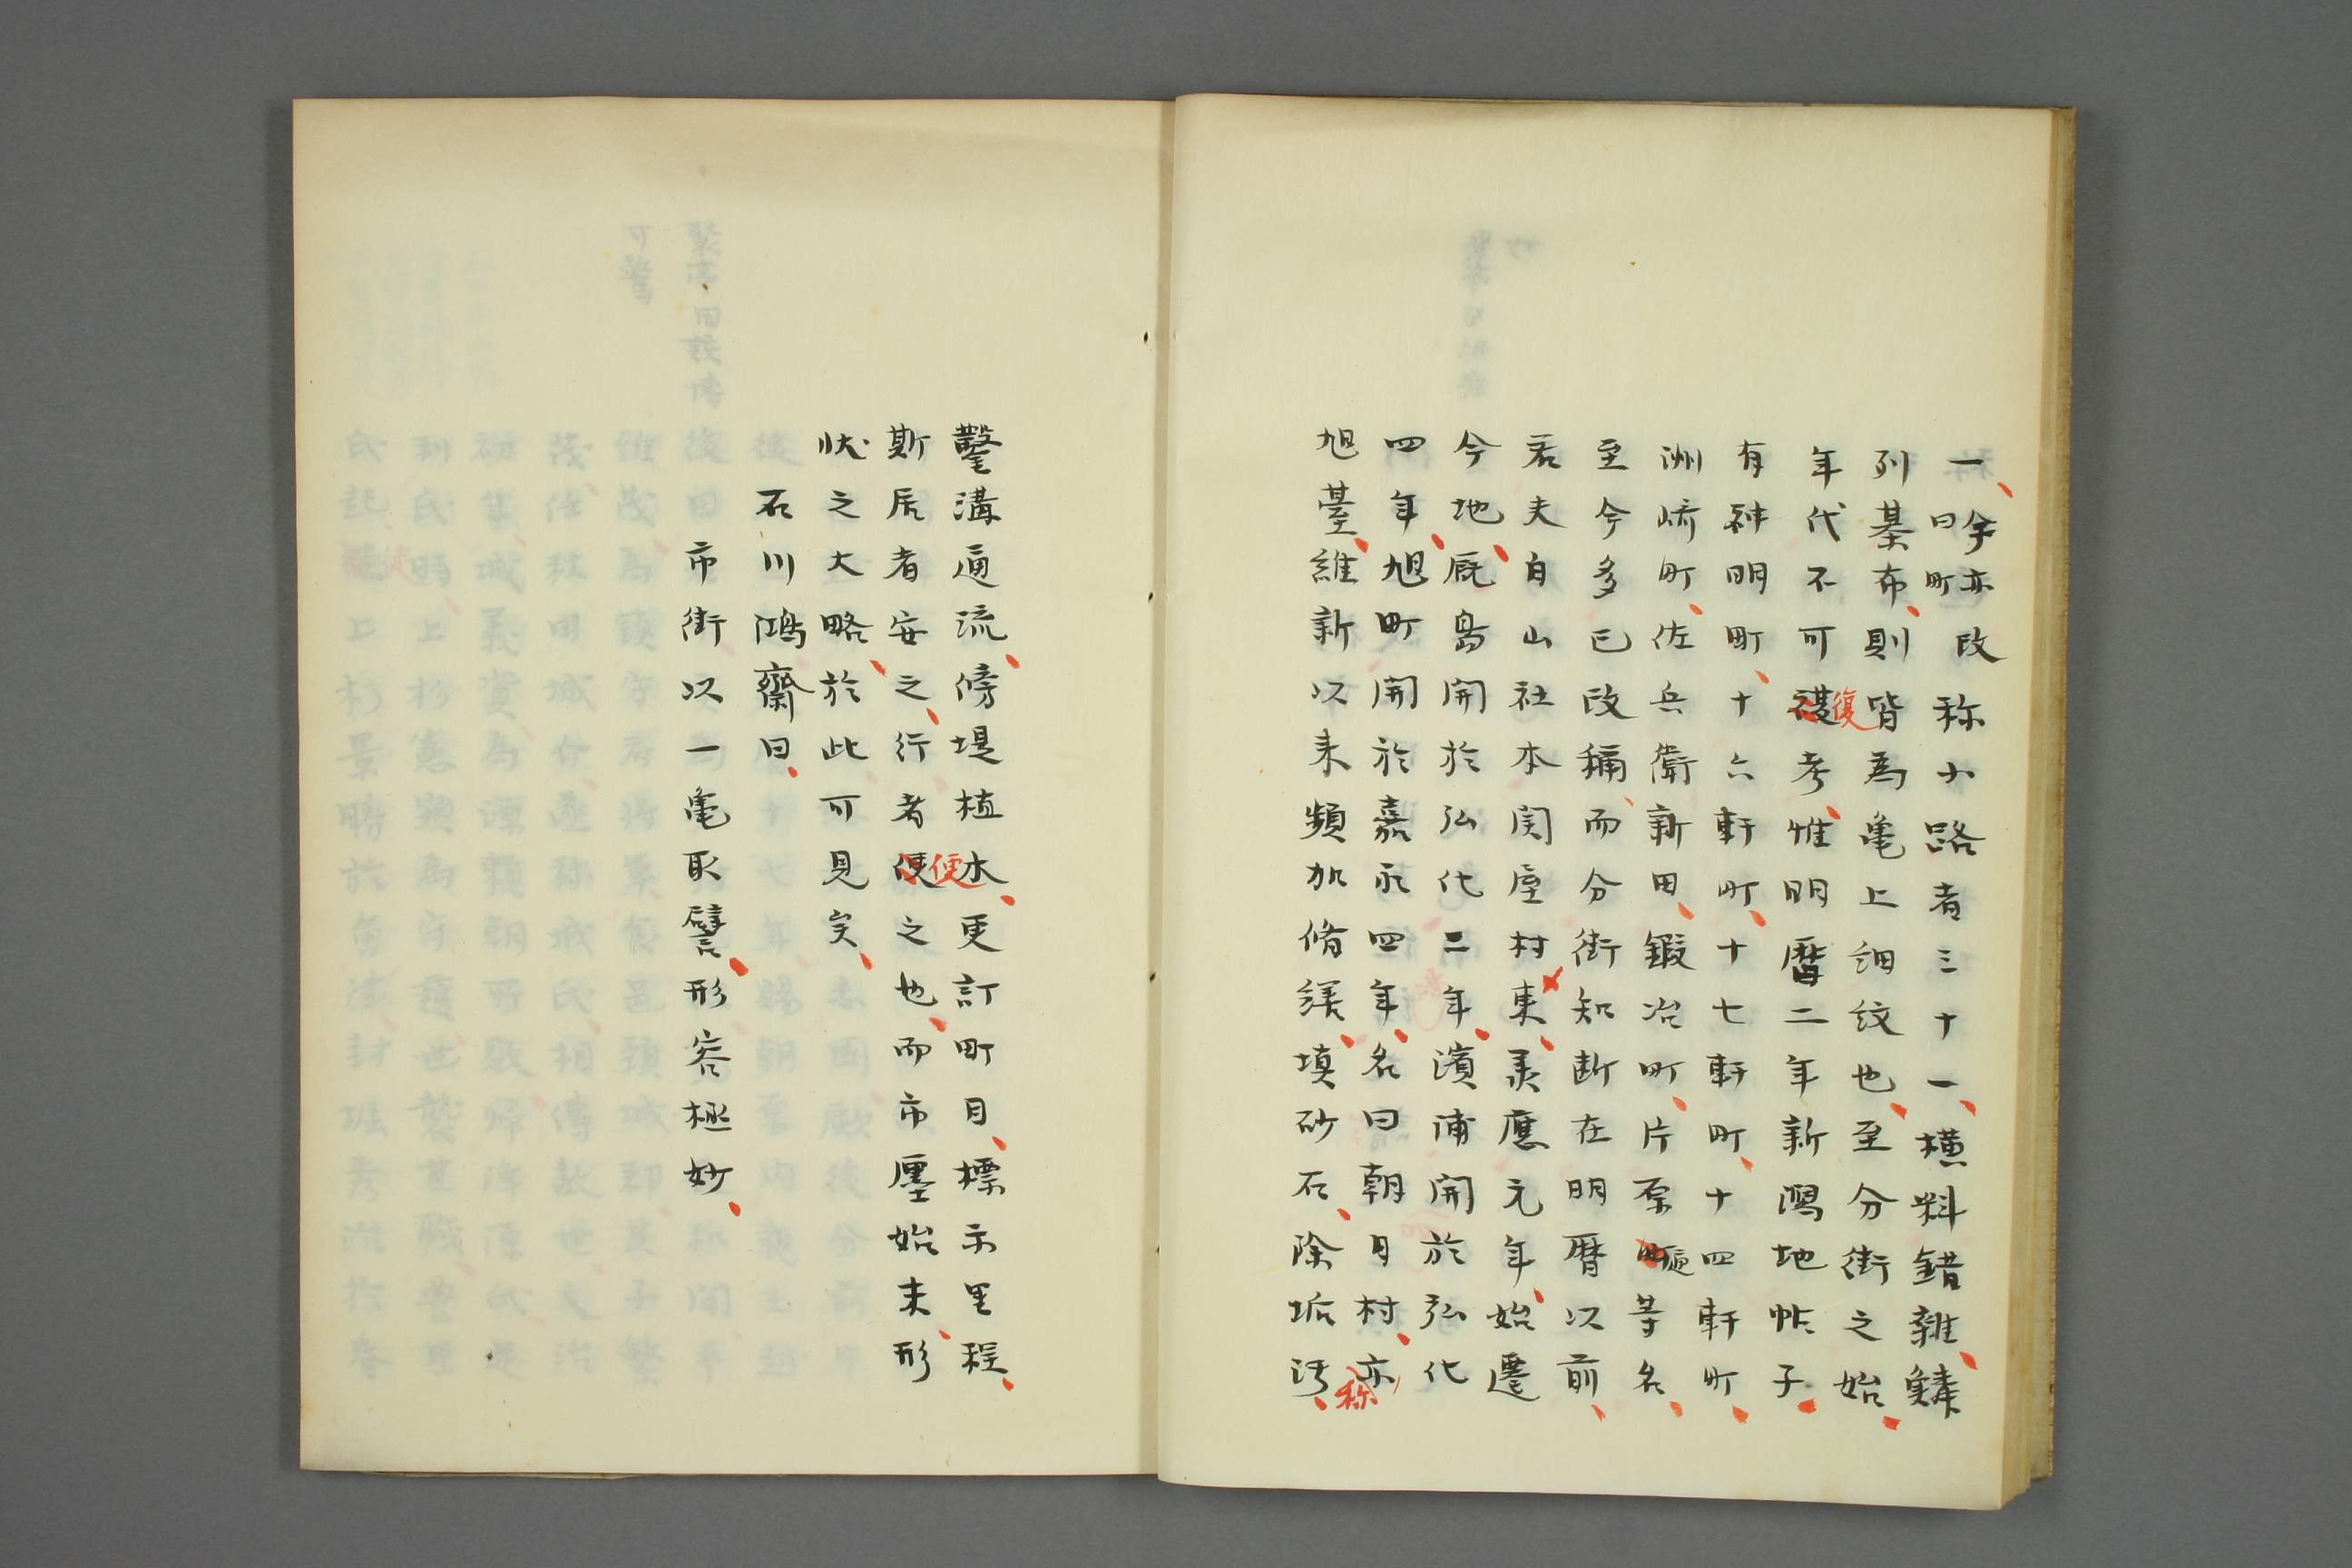 一 今亦曰町 改称小路者三十一横斜錯雜鱗
列棊布則皆為亀上細紋也至分街之始
年代不可復考惟明暦二年新潟地帖子
復
有神明町十六軒町十七軒町十四軒町
洲崎町佐兵衛新田鍛冶町片原町等名
至今多已改稱而分街知断在明暦以前
若夫白山社本関屋村東羕應元年始遷
今地厩島開於弘化二年濱浦開於弘化
四年旭町開於嘉永四年名曰朝日村亦
称
旭臺維新以来頻加脩繕塡砂石除垢污
鑿溝通流傍堤植水更訂町目標示里程
斯居者安之行者便之也而市廛始末形
便
状之大略於此可見矣
石川鴻齋曰
市街以一亀取譬形容極妙